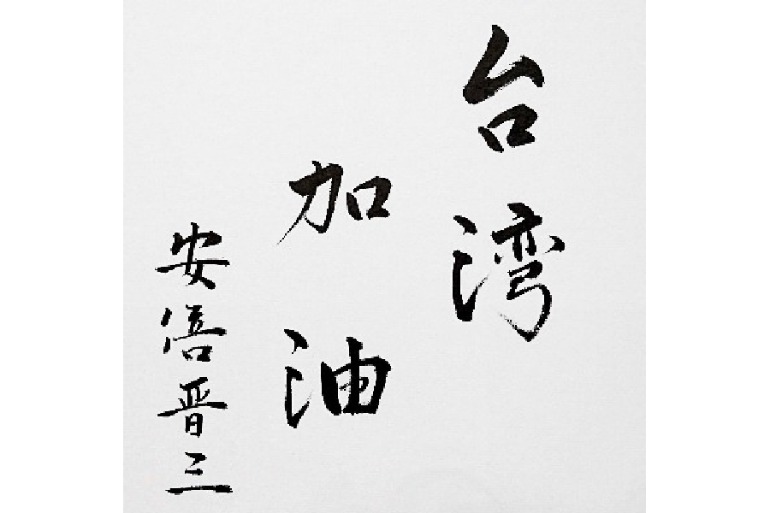 台湾
加油
安倍晋三